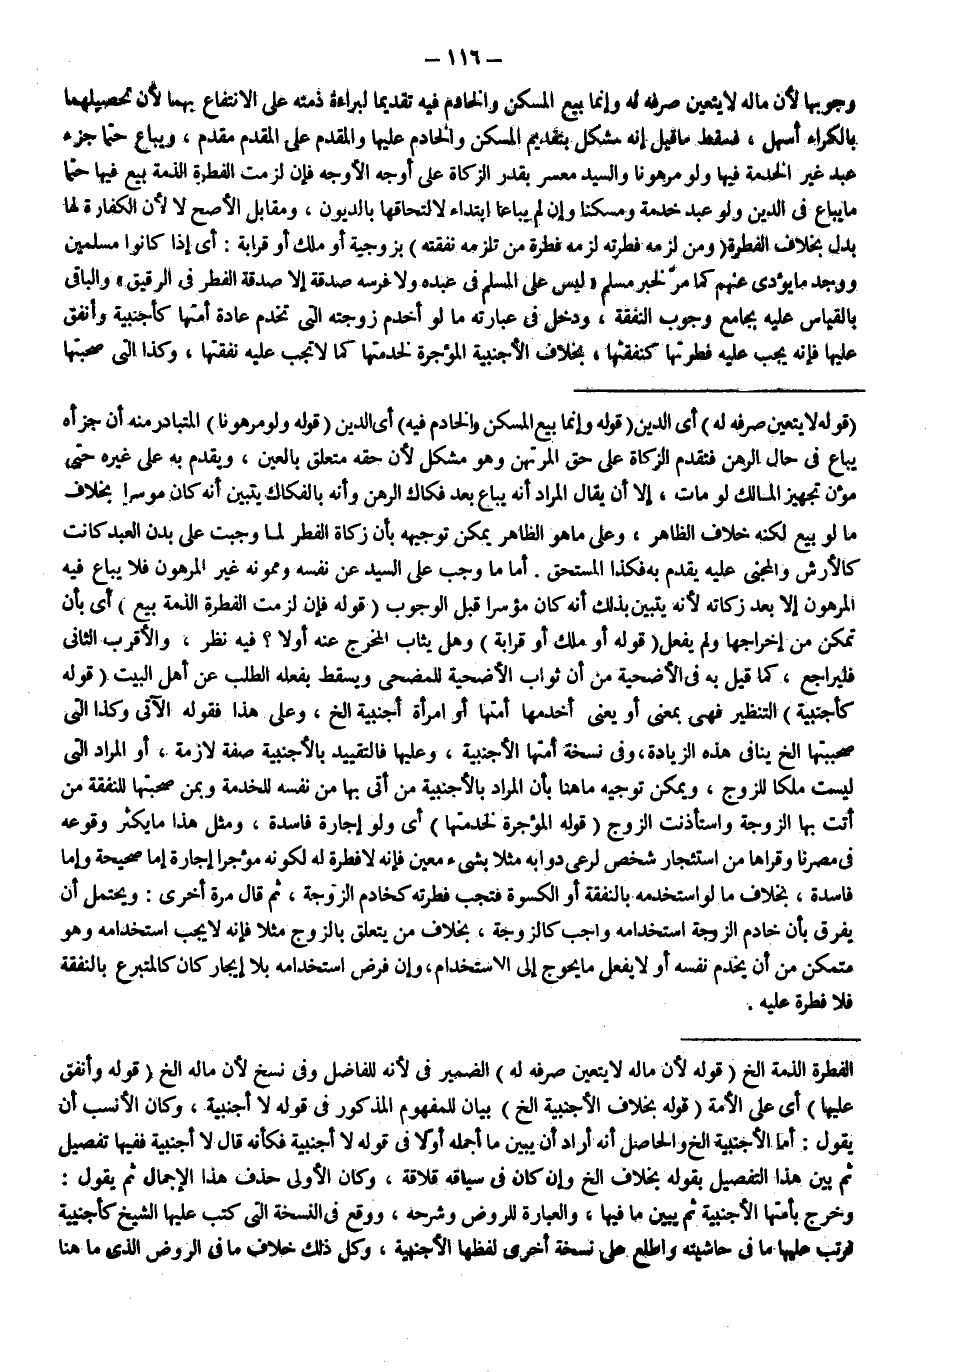 – ١١٦ –
وجوبها لأن ماله لايتعين صرفه له وإنما بيع المسكن والخادم فيه تقديما لبراءة ذمته على الانتفاع بهما لأن تحصيلهما
بالكراء أسهل ، فسقط ماقيل إنه مشكل بتقديم المسكن والخادم عليها والمقدم على المقدم مقدم ، ويباع حتما جزء
عبد غير الخدمة فيها ولو مرهونا والسيد معسر بقدر الزكاة على أوجه الأوجه فإن لزمت الفطرة الذمة بيع فيها حتما
مايباع فى الدين ولو عبد خدمة ومسكنا وإن لم يباعا ابتداء لالتحاقها بالديون ، ومقابل الأصح لا لأن الكفارة لها
بدل بخلاف الفطرة ( ومن لزمه فطرته لزمه فطرة من تلزمه نفقته ) بزوجية أو ملك أو قرابة : أى إذا كانوا مسلمين
ووجد مايؤدى عنهم كما مرّ لخبر مسلم « ليس على المسلم فى عبده ولا فرسه صدقة إلا صدقة الفطر فى الرقيق » والباقى
بالقياس عليه بجامع وجوب النفقة ، ودخل فى عبارته ما لو أخدم زوجته التى تخدم عادة أمتها كأجنبية وأنفق
عليها فإنه يجب عليه فطرتها كنفقتها ، بخلاف الأجنبية المؤجرة لخدمتها كما لاتجب عليه نفقتها ، وكذا التى صحبتها
( قوله لا يتعين صرفه له ) أى الدين ( قوله وإنما بيع المسكن والخادم فيه ) أى الدين ( قوله ولو مرهونا ) المتبادر منه أن جزأه
يباع فى حال الرهن فتقدم الزكاة على حق المرتهن وهو مشكل لأن حقه متعلق بالعين ، ويقدم به على غيره حتى
مؤن تجهيز المالك لو مات ، إلا أن يقال المراد أنه يباع بعد فكاك الرهن وأنه بالفكاك يتبين أنه كان موسرا بخلاف
ما لو بيع لكنه خلاف الظاهر ، وعلى ماهو الظاهر يمكن توجيهه بأن زكاة الفطر لما وجبت على بدن العبد كانت
كالأرش والمجنى عليه يقدم به فكذا المستحق . أما ما وجب على السيد عن نفسه وممونه غير المرهون فلا يباع فيه
المرهون إلا بعد زكاته لأنه يتبين بذلك أنه كان مؤسرا قبل الوجوب ( قوله فإن لزمت الفطرة الذمة بيع ) أى بأن
تمكن من إخراجها ولم يفعل ( قوله أو ملك أو قرابة ) وهل يثاب المخرج عنه أولا ؟ فيه نظر ، والأقرب الثانى
فليراجع ، كما قيل به فى الأضحية من أن ثواب الأضحية للمضحى ويسقط بفعله الطلب عن أهل البيت ( قوله
كأجنبية ) التنظير فهى بمعنى أو يعنى أخدمها أمتها أو امرأة أجنبية الخ ، وعلى هذا فقوله الآتى وكذا التى
صحبتها الخ ينافى هذه الزيادة ، وفى نسخة أمتها الأجنبية ، وعليها فالتقييد بالأجنبية صفة لازمة ، أو المراد التى
ليست ملكا للزوج ، ويمكن توجيه ماهنا بأن المراد بالأجنبية من أتى بها من نفسه للخدمة وبمن صحبتها للنفقة من
أتت بها الزوجة واستأذنت الزوج ( قوله المؤجرة لخدمتها ) أى ولو إجارة فاسدة ، ومثل هذا مايكثر وقوعه
فى مصرنا وقراها من استئجار شخص لرعى دوابه مثلا بشىء معين فإنه لا فطرة له لكونه مؤجرا إجارة إما صحيحة وإما
فاسدة ، بخلاف ما لو استخدمه بالنفقة أو الكسوة فتجب فطرته كخادم الزوجة ، ثم قال مرة أخرى : ويحتمل أن
يفرق بأن خادم الزوجة استخدامه واجب كالزوجة ، بخلاف من يتعلق بالزوج مثلا فإنه لايجب استخدامه وهو
متمكن من أن يخدم نفسه أو لايفعل مايحوج إلى الاستخدام ، وإن فرض استخدامه بلا إيجار كان كالمتبرع بالنفقة
فلا فطرة عليه .
الفطرة الذمة الخ ( قوله لأن ماله لايتعين صرفه له ) الضمير فى لأنه للفاضل وفى نسخ لأن ماله الخ ( قوله وأنفق
عليها ) أى على الأمة ( قوله بخلاف الأجنبية الخ ) بيان للمفهوم المذكور فى قوله لا أجنبية ، وكان الأنسب أن
يقول : أما الأجنبية الخ والحاصل أنه أراد أن يبين ما أجمله أولا فى قوله لا أجنبية فكأنه قال لا أجنبية ففيها تفصيل
ثم بين هذا التفصيل بقوله بخلاف الخ وإن كان فى سياقه قلاقة ، وكان الأولى حذف هذا الإجمال ثم يقول :
وخرج بأمتها الأجنبية ثم يبين ما فيها ، والعبارة للروض وشرحه ، ووقع فى النسخة التى كتب عليها الشيخ كأجنبية
فرتب عليها ما فى حاشيته واطلع على نسخة أخرى لفظها الأجنبية ، وكل ذلك خلاف ما فى الروض الذى ما هنا